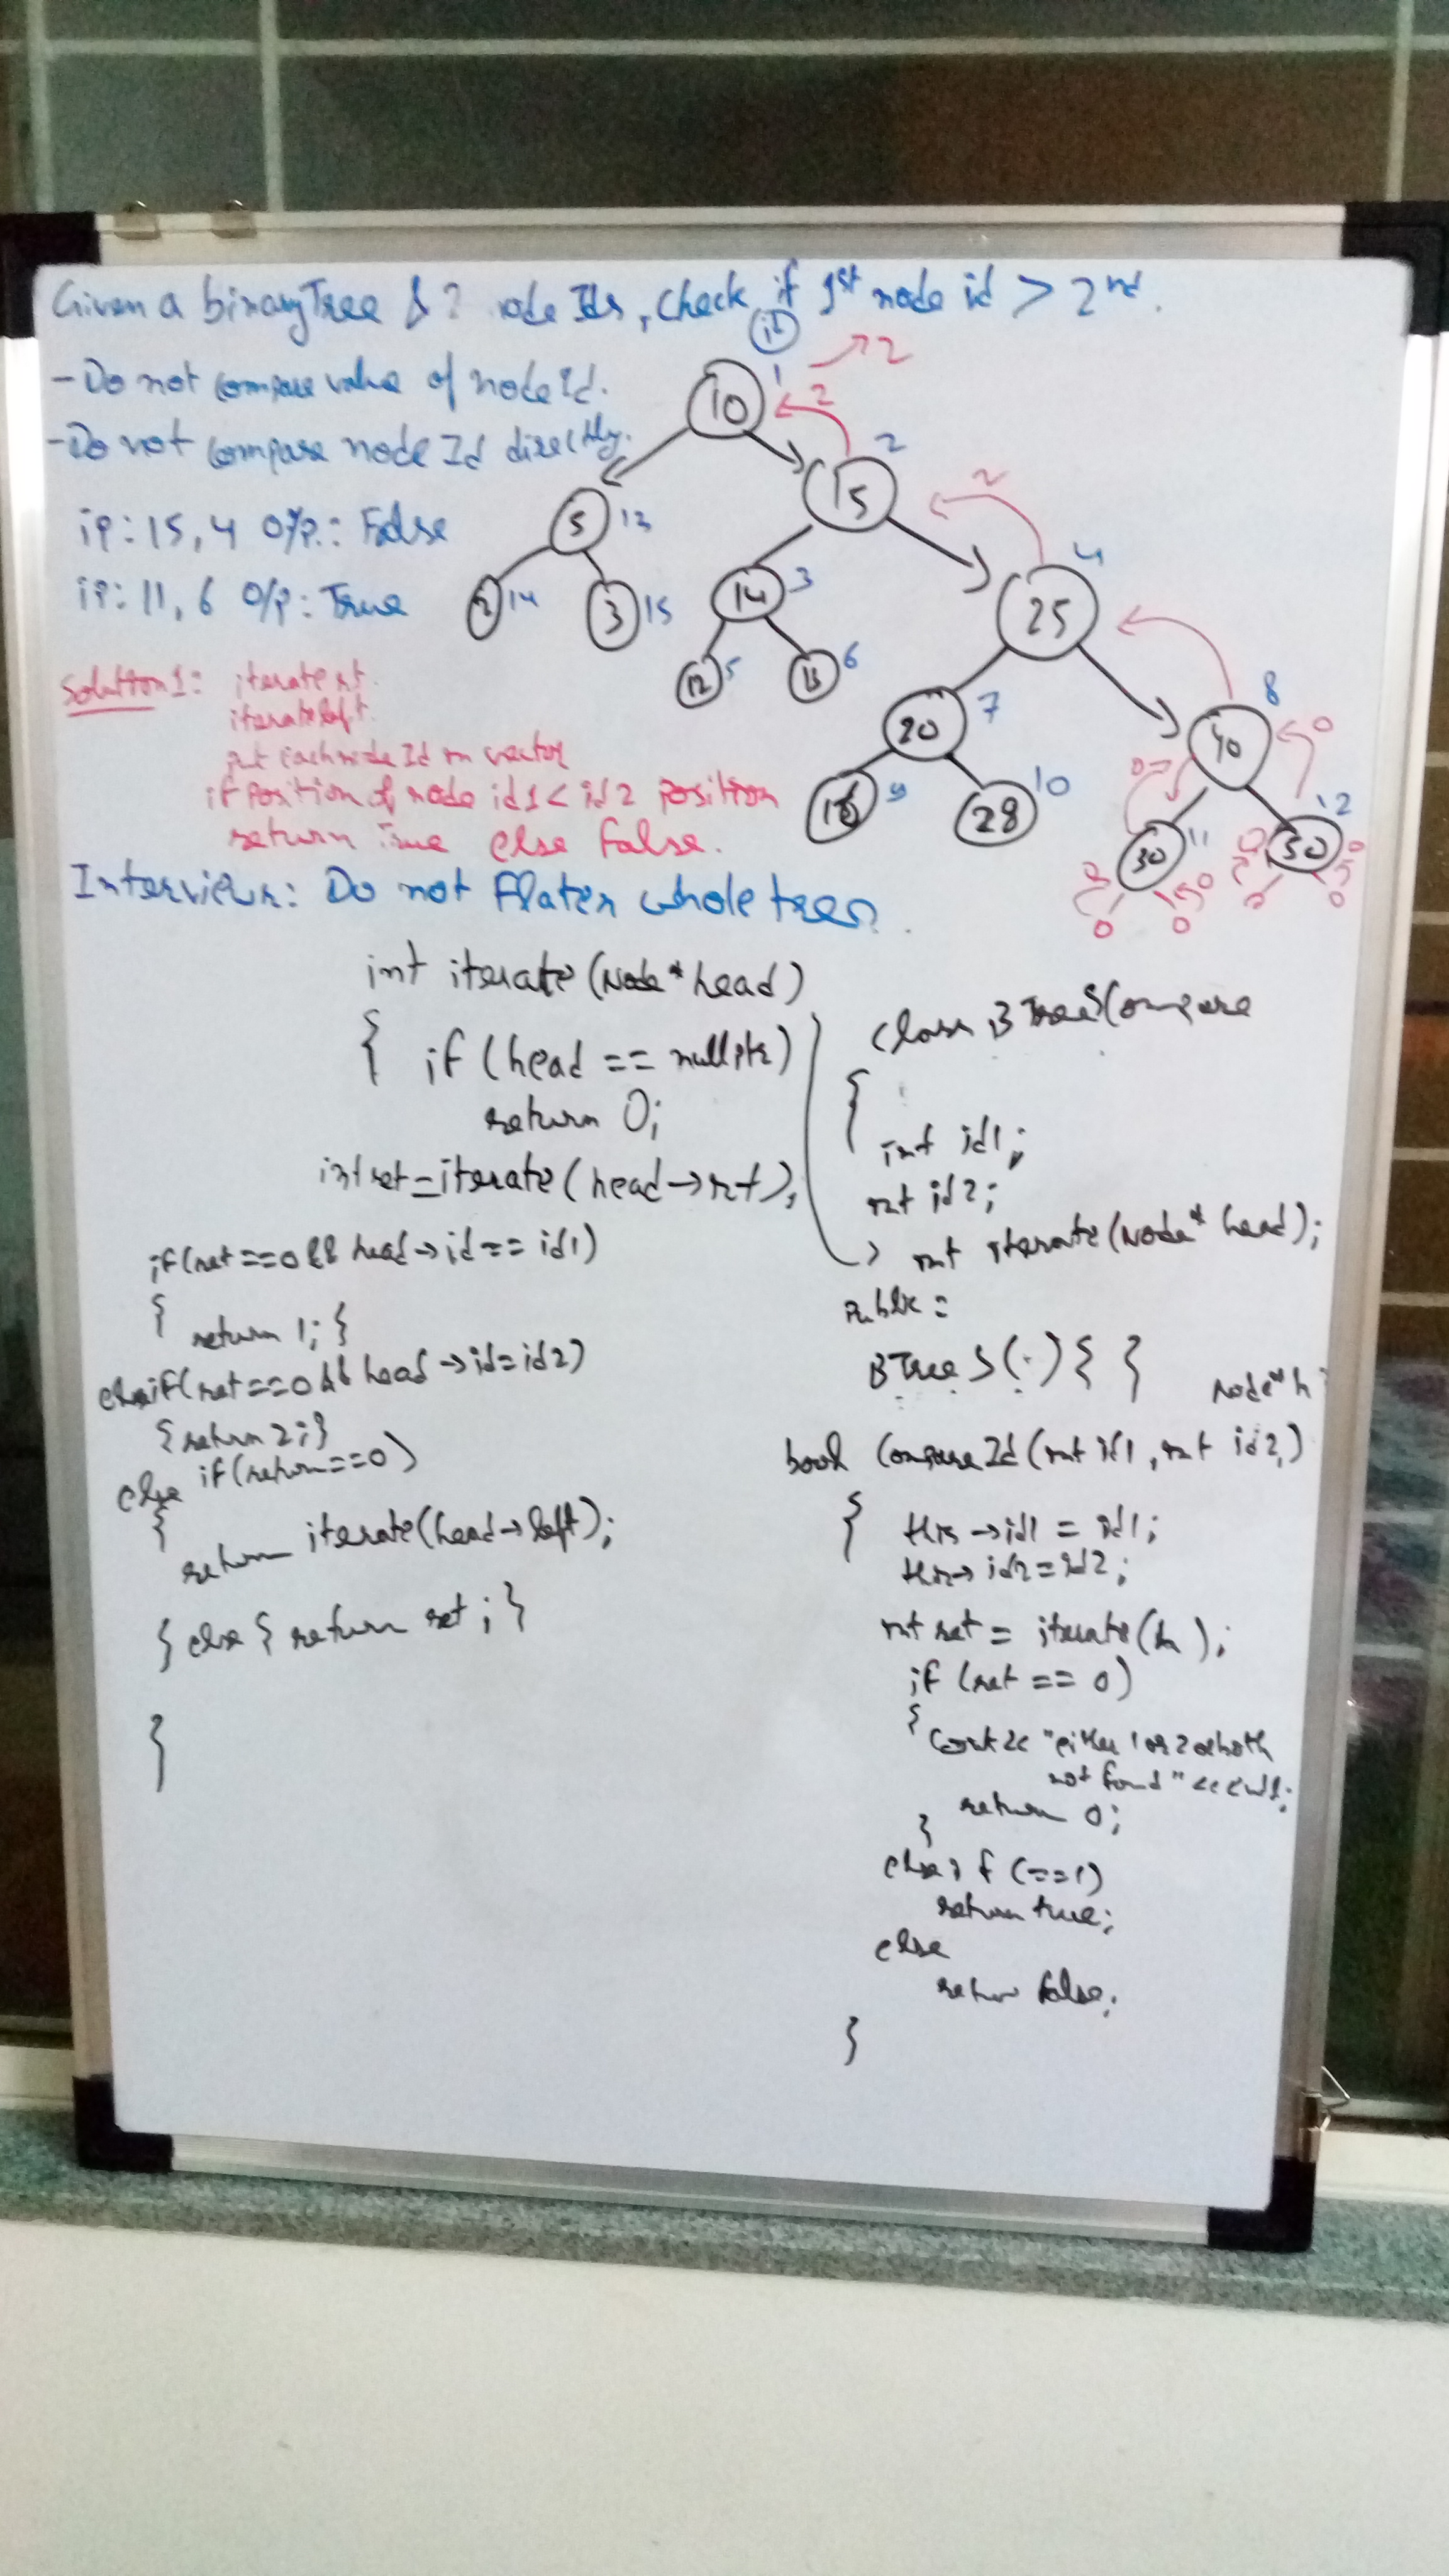 Given a binaryTree & 2 node Ids, check if 1st node id > 2nd.
- Do not compare value of node Id.
- Do not compare node Id directly.
ip: 15, 4 O/p: False
ip: 11, 6 O/p: True
id
10 1 2
2
5 13
15 2
2
2 14
3 15
14 3
25 4
12 5
13 6
20 7
40 8
0
18 9
28 10
30 11
50 12
0 0 0 0
0 0 0 0
Solution 1: iterate rt.
iterate left.
put each node Id in vector
if position of node id1 < id2 position
return True else false.
Interviewer: Do not Flaten whole tree.
int iterate (Node* head)
{ if (head == nullptr)
return 0;
int ret = iterate (head → rt);
if (ret == 0 && head → id == id1)
{ return 1; }
else if (ret == 0 && head → id = id2)
{ return 2; }
else if (return == 0)
{
return iterate (head → left);
} else { return ret; }
}
class BTreeSCompare
{
int id1;
int id2;
int iterate (Node* head);
Public:
BTreeS(.) { }
Node* h
bool CompareId (int id1, int id2,)
{ this → id1 = id1;
this → id2 = id2;
int ret = iterate (h);
if (ret == 0)
{ cout << "either 1 or 2 or both
not found" << endl;
return 0;
}
else if (==1)
return true;
else
return false;
}